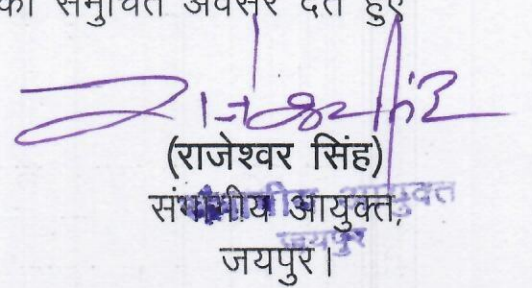 का समुचित अवसर देते हुए
(राजेश्वर सिंह)
संभागीय आयुक्त,
संभागीय आयुक्त
जयपुर
जयपुर।